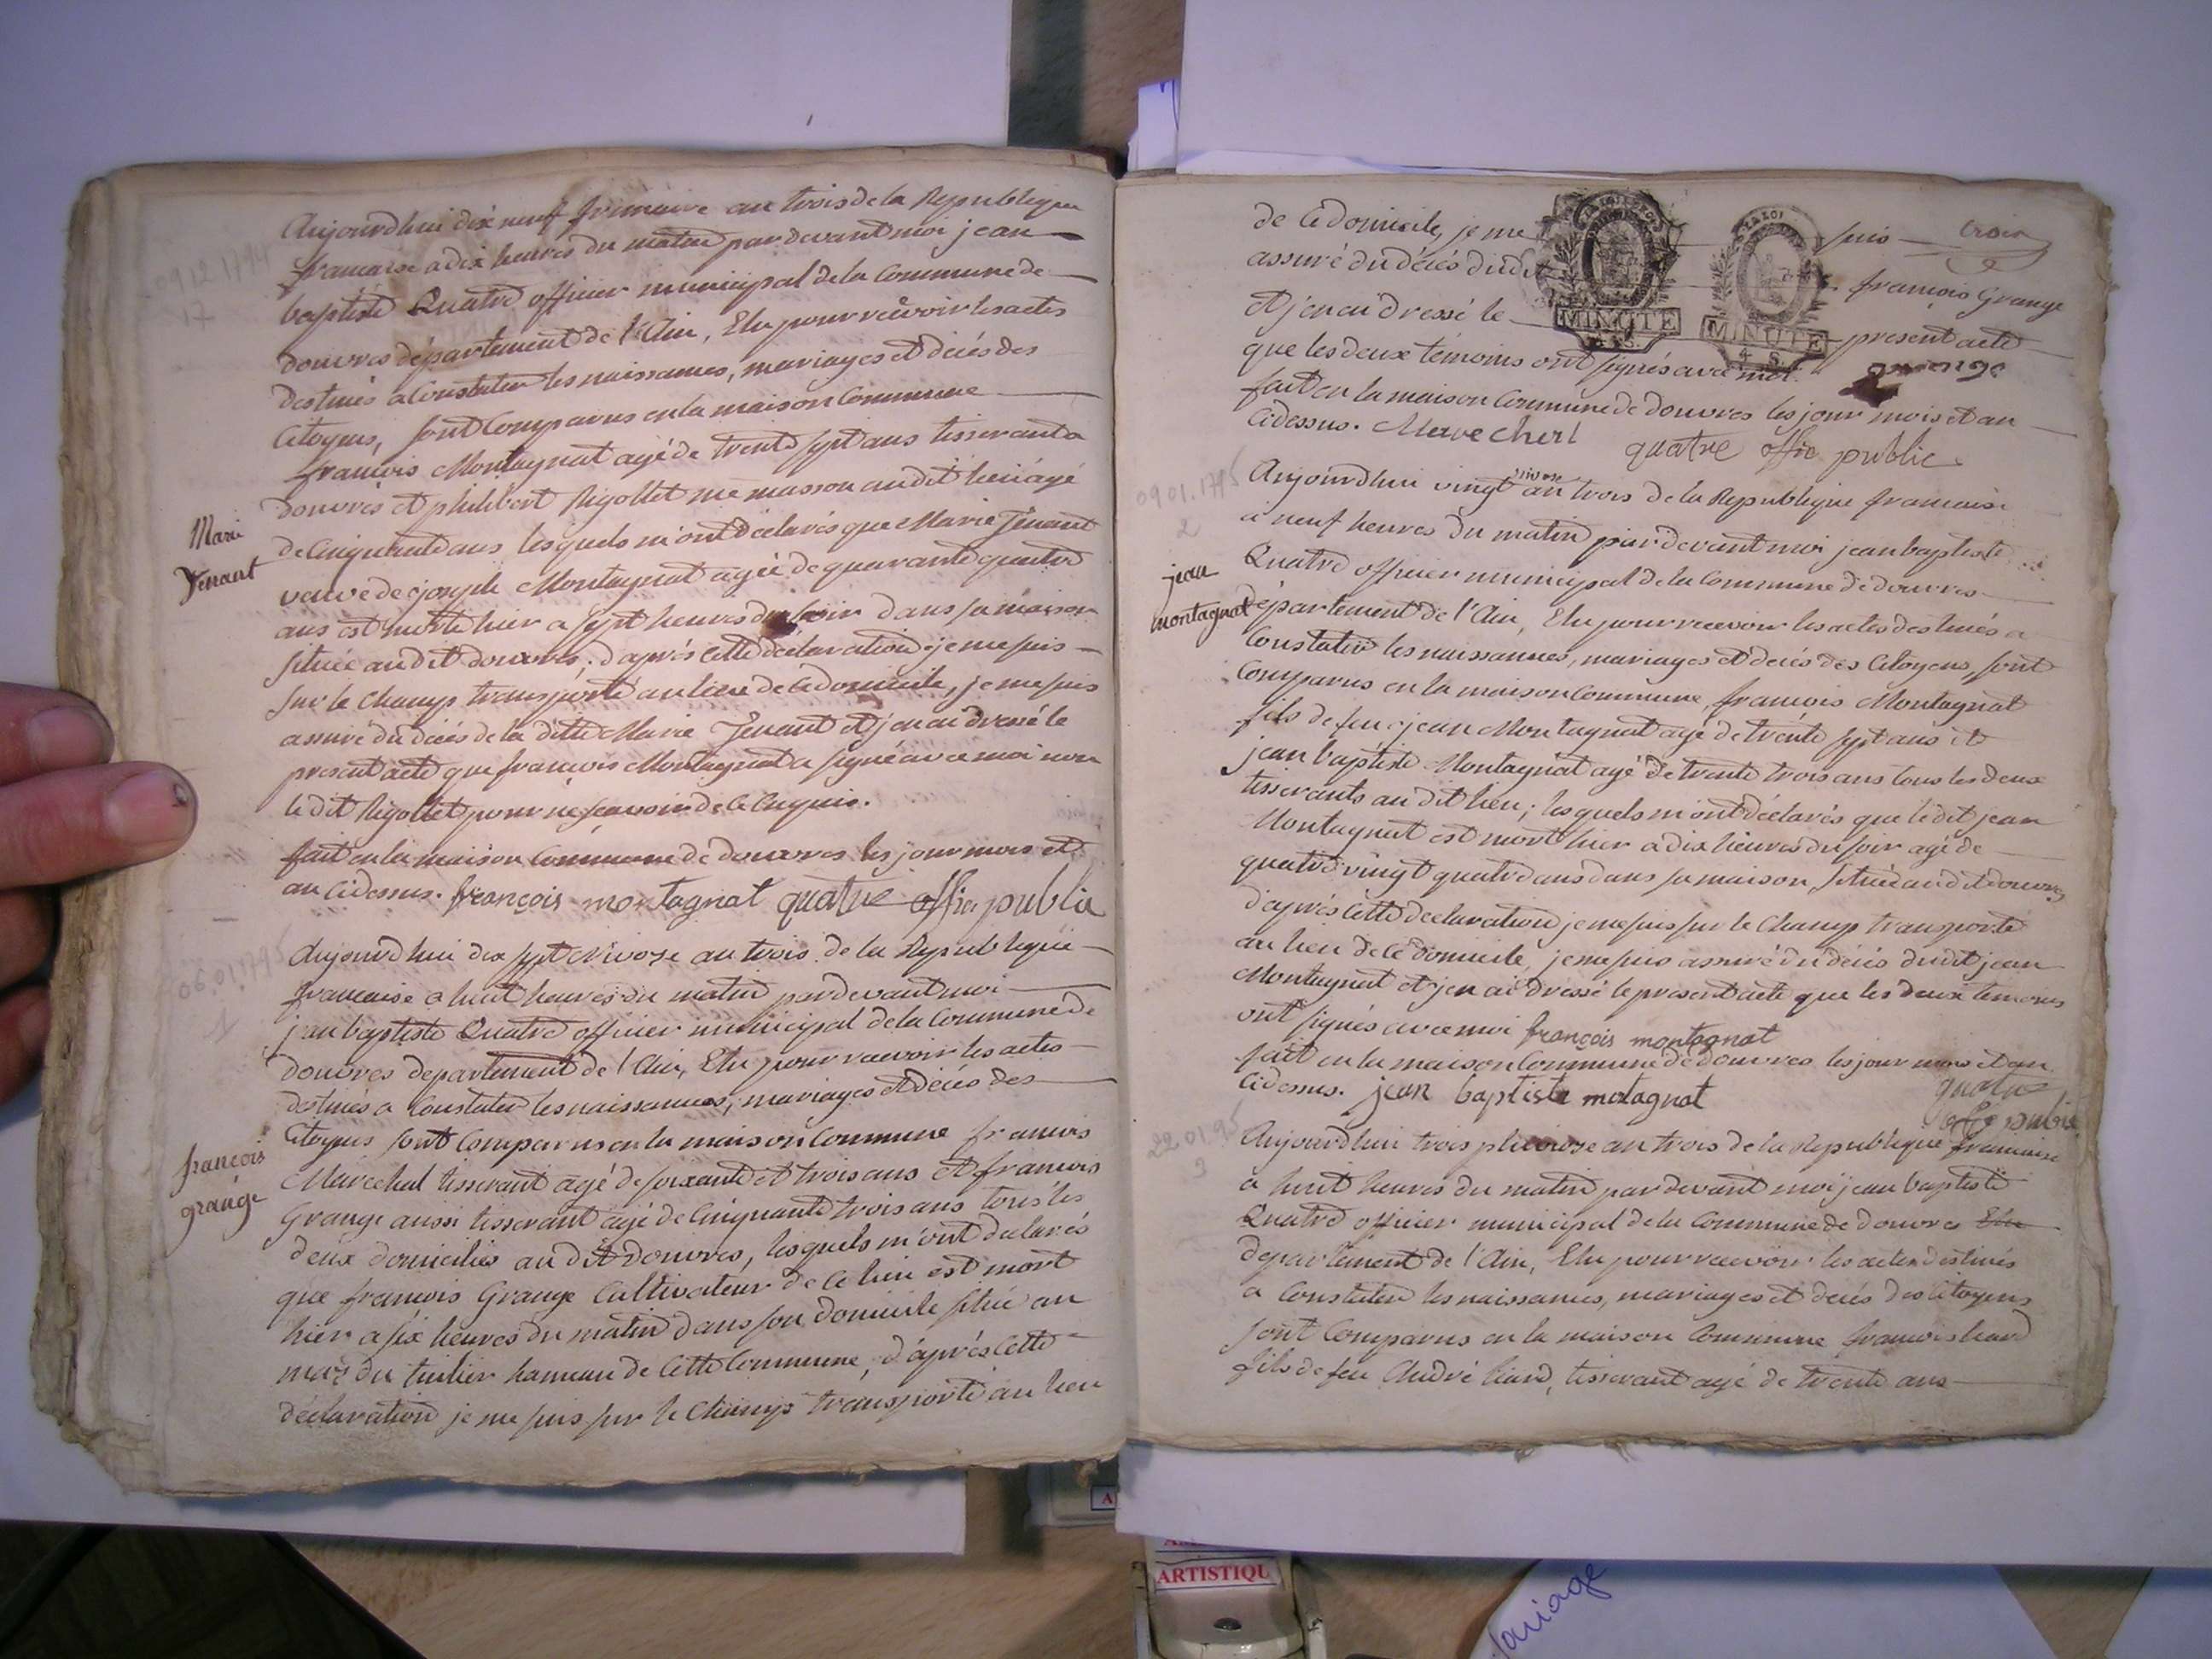 Aujourdhui dix neuf frimaire an trois de la Republique
francaise a dix heures du matin par devant moi jean
baptiste Quatre officier municipal de la Commune de
douvres département de l'Ain, Elu pour recevoir les actes
destinés a Constater les naissances, mariages et décés des
Citoyens, sont Comparus en la maison Commune
francois Montagnat agé de trente sept ans tisserant a
douvres et philibert Rigollet me masson audit lieu agé
de Cinquante ans lesquels m'ont déclarés que Marie Tenant
veuve de joseph Montagnat agée de quarante quatre
ans est morte hier a sept heures du soir dans sa maison
située audit douvres; d'aprés cette déclaration je me suis
sur le Champ transporté au lieu de ce domicile, je me suis
assuré du décés de la ditte Marie Tenant et j'en ai dressé le
present acte que francois Montagnat a signé avec moi non
le dit Rigollet pour ne scavoir de ce Enquis.
fait en la maison Commune de douvres les jour mois et
an Cidessus. françois montagnat quatre offier public
Marie
Tenant
09.12.1794
17
Aujourdhui dix sept Nivose an trois de la Republique
francaise a huit heures du matin par devant moi
jean baptiste Quatre officier municipal de la Commune de
douvres departement de l'Ain, Elu pour recevoir les actes
destinés a Constater les naissances, mariages et décés des
Citoyens sont Comparus en la maison Commune francois
Marechal tisserant agé de soixante et trois ans et francois
Grange aussi tisserant agé de Cinquante trois ans tous les
deux domiciliés au dit douvres, lesquels m'ont déclarés
que francois Grange Cultivateur de ce lieu est mort
hier a six heures du matin dans son domicile situé au
maz du tuilier hameau de cette Commune, d'aprés cette
déclaration je me suis sur le Champ transporté au lieu
06.01.1795
1
françois
grange
de ce domicile, je me suis
assuré du décés dudit francois Grange
et j'en ai dressé le present acte
que les deux témoins ont signés avec moi. grange
fait en la maison Commune de douvres les jour mois et an
Cidessus. Marechal quatre offier public
trois
MINUTE
4 S.
MINUTE
4 S.
Aujourdhui vingt nivose an trois de la Republique francaise
a neuf heures du matin par devant moi jean baptiste
Quatre officier municipal de la Commune de douvres
département de l'Ain, Elu pour recevoir les actes destinés a
Constater les naissances, mariages et decés des Citoyens, sont
Comparus en la maison Commune, francois Montagnat
fils de feu jean Montagnat agé de trente sept ans et
jean baptiste Montagnat agé de trente trois ans tous les deux
tisserants au dit lieu; lesquels m'ont déclarés que le dit jean
Montagnat est mort hier a dix heures du soir agé de
quatre vingt quatre ans dans sa maison, située au dit douvres
d'aprés cette declaration je me suis sur le Champ transporté
au lieu de ce domicile je me suis assuré du décés dudit jean
Montagnat et j'en ai dressé le present acte que les deux temoins
ont signés avec moi françois montagnat
fait en la maison Commune de douvres les jour mois et an
Cidessus. jean baptiste motagnat quatre
offier public
09.01.1795
2
jean
montagnat
Aujourdhui trois pluviose an trois de la Republique francaise
a huit heures du matin par devant moi jean baptiste
Quatre officier municipal de la Commune de douvres Elu
departement de l'Ain, Elu pour recevoir les actes destinés
a Constater les naissances, mariages et decés des Citoyens
sont Comparus en la maison Commune francois hard
fils de feu André hard, tisserant agé de trente ans
22.01.95
3
ARTISTIQU
Mariage